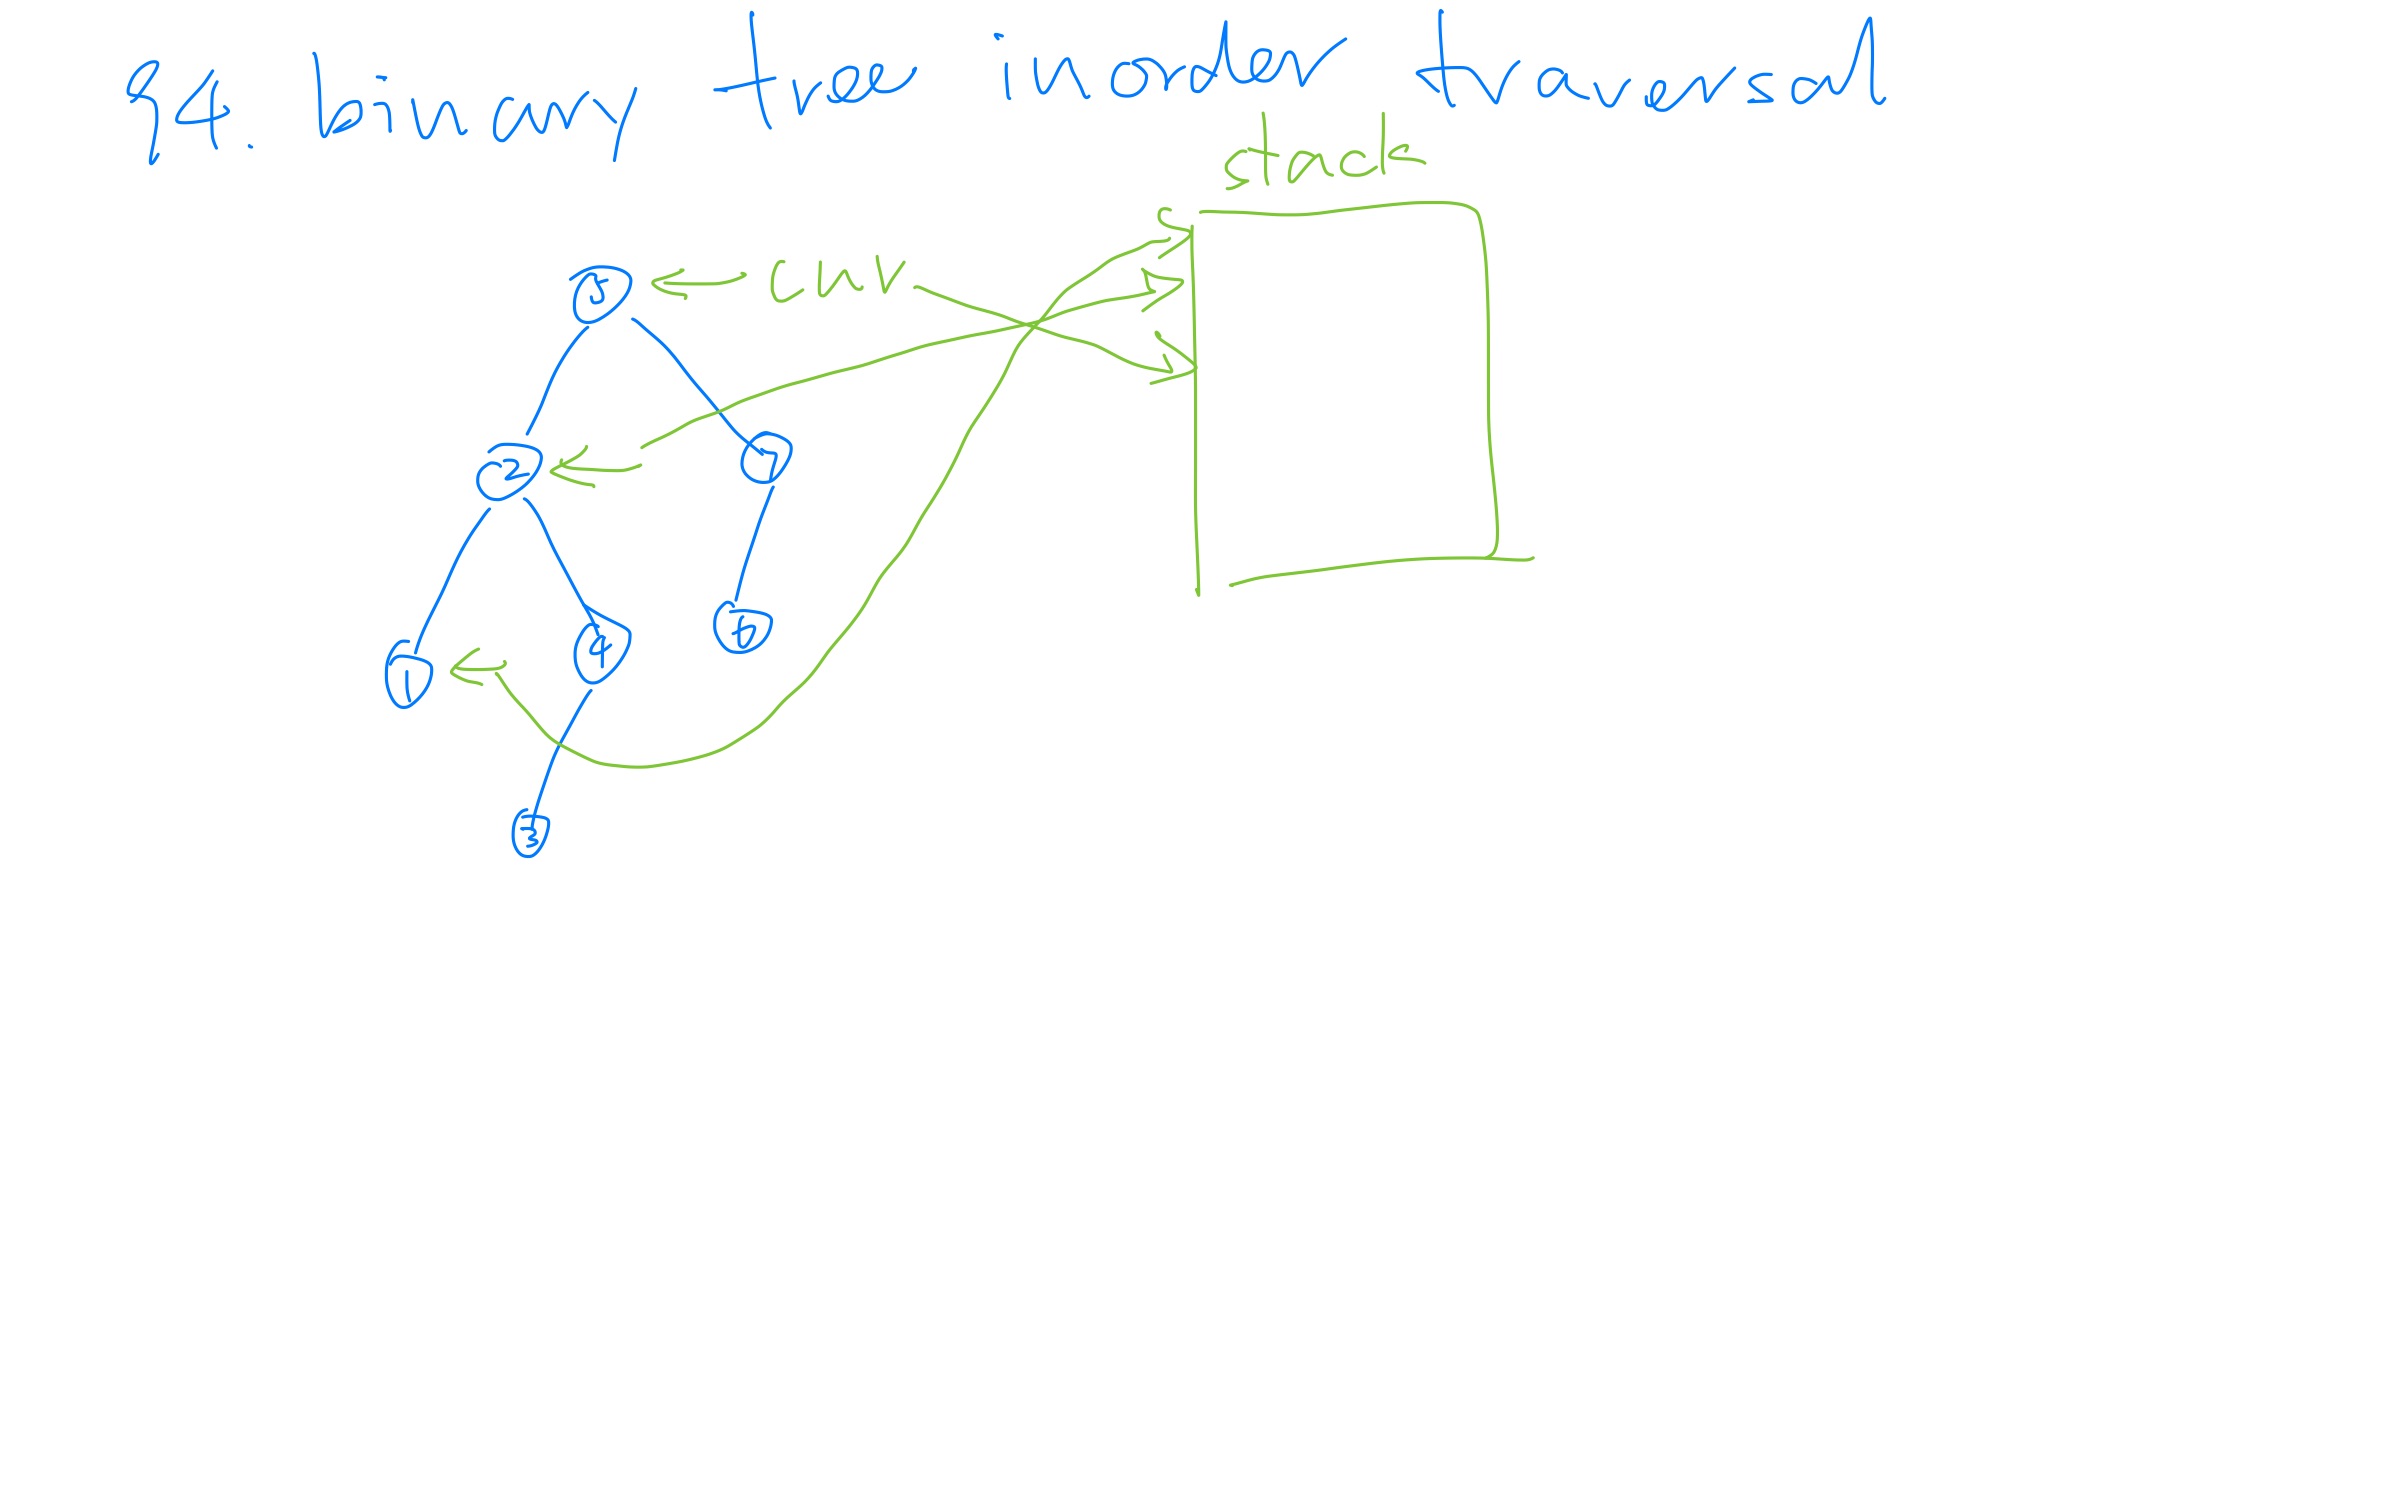 94. binary tree inorder traversal
stack
5 curr
2 7
1 4 6
3